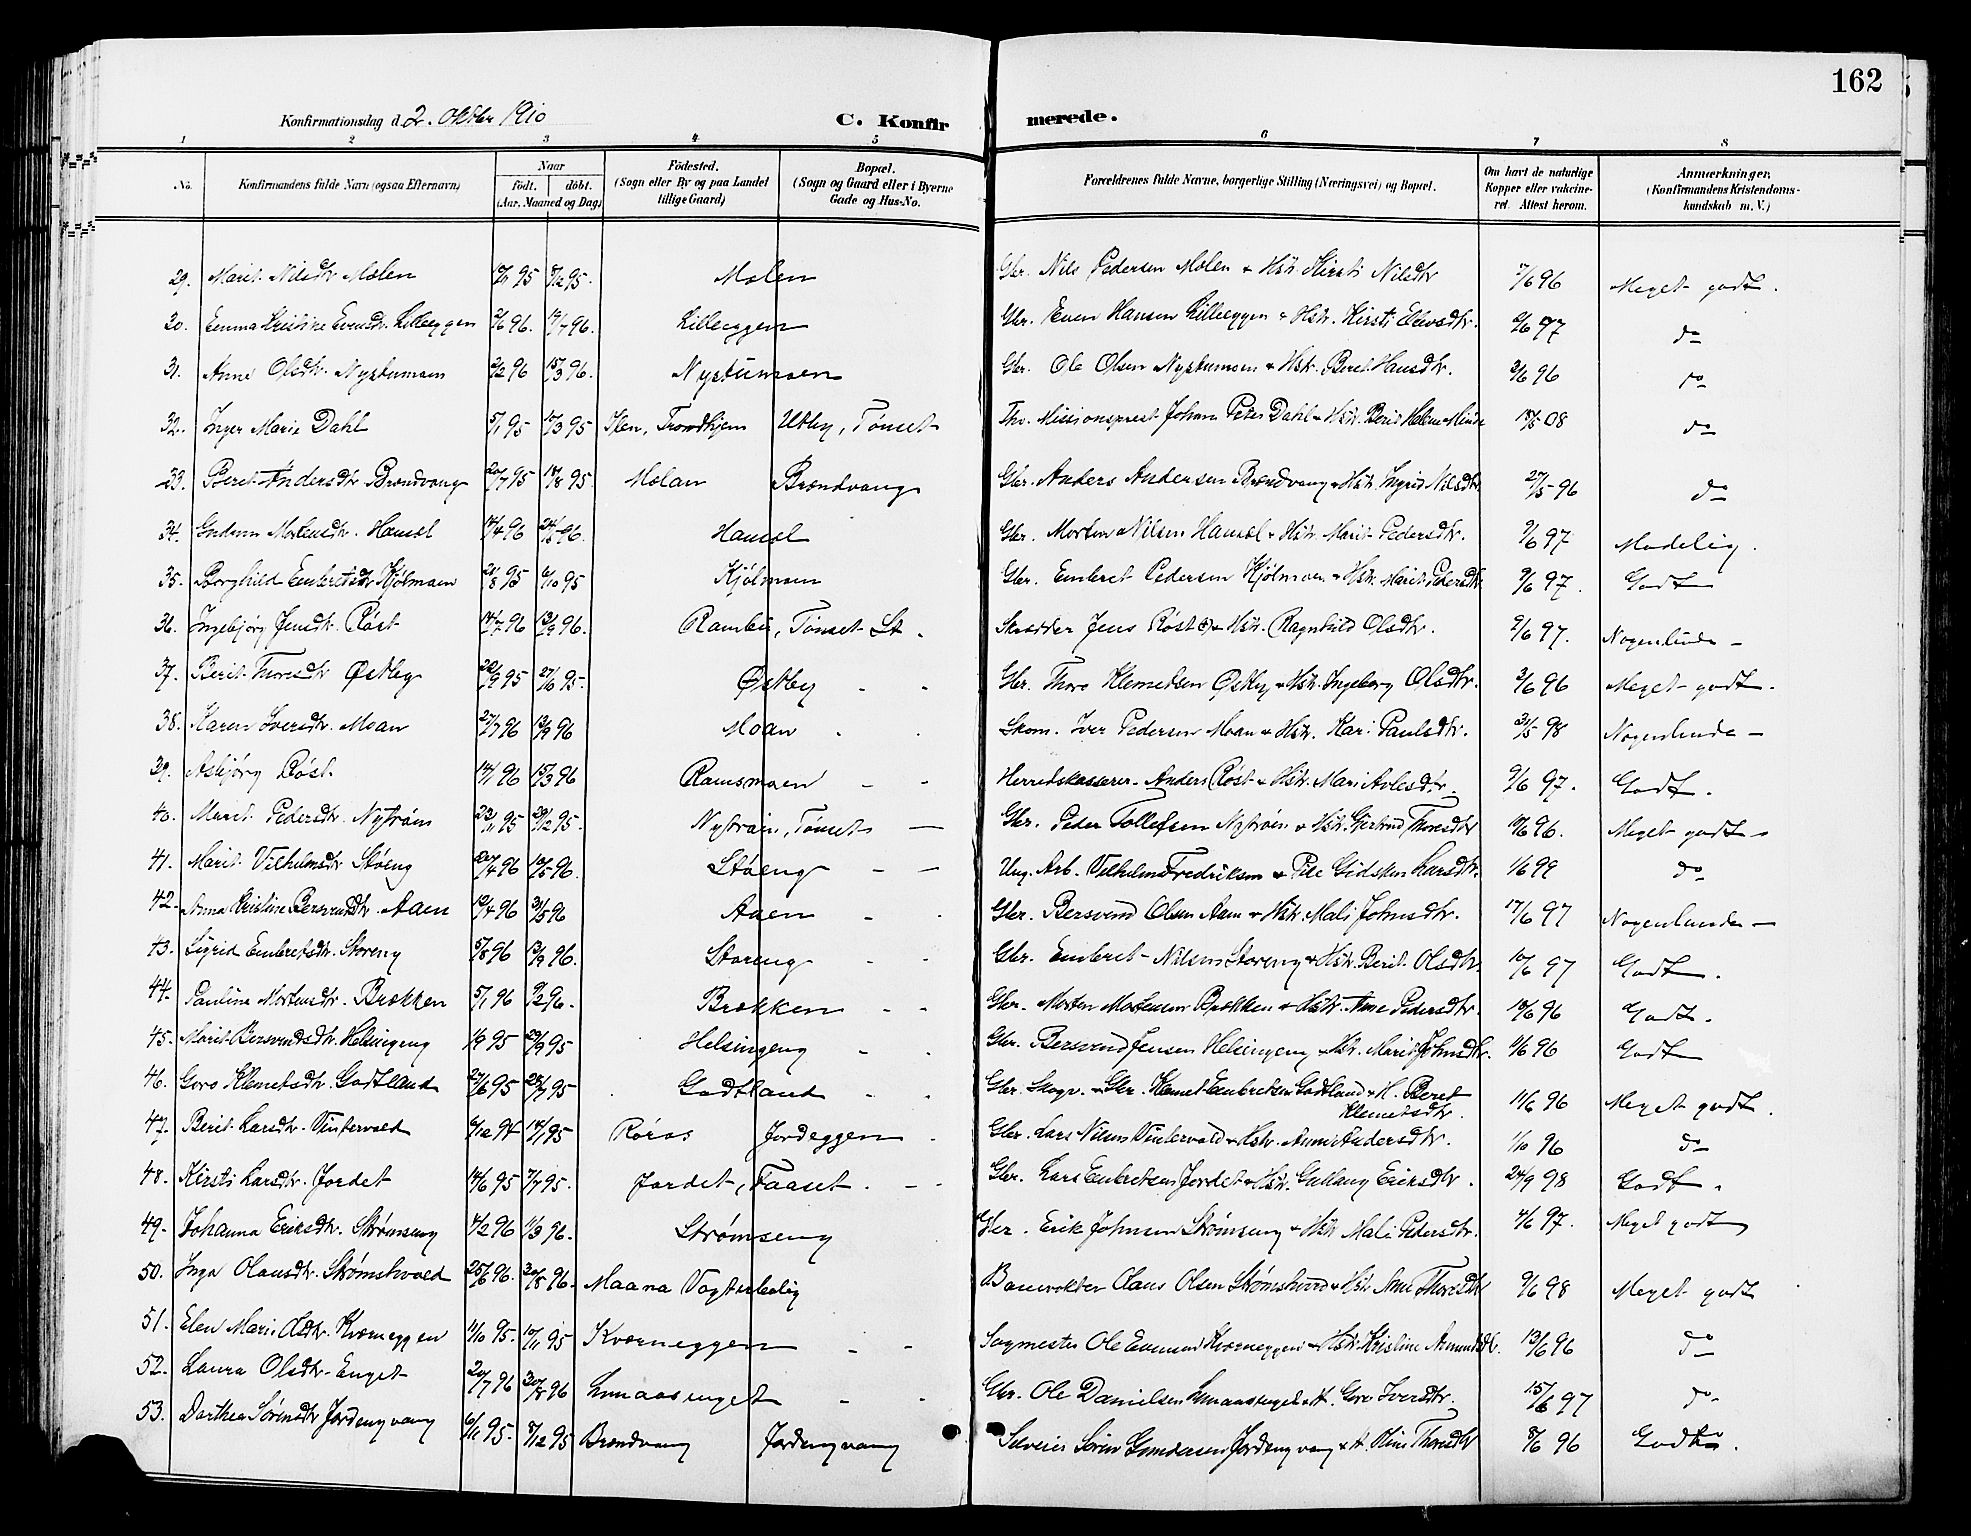 162
Konfirmationsdag d. 2. Oktbr 1910
C. Konfirmerede.
1 2 3 4 5 6 7 8
No. Konfirmandens fulde Navn (ogsaa Efternavn) Naar født. døbt. (Aar, Maaned og Dag) Fødested. (Sogn eller By og paa Landet tillige Gaard) Bopæl. (Sogn og Gaard eller i Byerne Gade og Hus-No. Forældrenes fulde Navne, borgerlige Stilling (Næringsvei) og Bopæl. Om havt de naturlige Kopper eller vakcineret. Attest herom. Anmærkninger. (Konfirmandens Kristendomskundskab m. V.)
29. Marit Nilsdtr. Mælen 95 95. Mælen Gbr. Nils Pedersen Mælen & Hstr. Kirsti Nilsdtr 7/6 96 Meget godt.
30. Emma Kristine Evensdtr. Lilleeggen 96. 17/7 96. Lilleeggen Gbr. Even Hansen Lilleeggen & Hstr. Kirsti 97 do
31. Anne Olsdtr. Nystumoen 2/2 96 15/3 96. Nystumoen Gbr. Ole Olsen Nystumoen & Hstr. Beret Hansdtr. 2/6 96 do
32. Inger Marie Dahl 5/1 95 17/3 95 Ilen, Trondhjem Utby, Tønset Fhv. Missionsprest Johan Peter Dahl & Hstr. Berit Helene 08 do
33. Beret Andersdtr Brændvang 20/7 95 18/8 95. Mælan Brændvang Gbr. Anders Andersen Brændvang & Hstr. Ingrid Nilsdtr. 27/5 96 do
34. Gudrun Mortensdtr. Hamsl 14/4 96 24/5 96. Gbr. Morten Nilsen & Hstr. Marit Pedersdtr. 9/6 97 Madelig.
35. Borghild Embretsdtr Kjølmoen 95 6/10 95 Kjølmoen Gbr. Embret Pedersen Kjølmoen & Hstr. Marit Pedersdtr 9/6 97. Godt
36. Ingebjørg Jensdtr. Røst 96 13/9 96. Rambu, Tønset St. Skrædder Jens Røst & Hstr. Ragnhild Olsdtr. 9/6 97. Nogenlunde –
37. Berit Thoresdtr Østby 22/9 95 27/10 95. Østby - - Gbr. Thore Klemetsen Østby & Hstr. Ingeborg Olsdtr. 2/6 96 Meget godt.
38. Karen Iversdtr. Moan 27/7 96 13/9 96 Moan - - Skom. Iver Pedersen Moan & Hstr. Kari Paulsdtr. 31/5 98 Nogenlunde –
39. Asbjørg Røst. 14/1 96 15/3 96 Ramsmoen - - Herredskasserer Anders Røst & Hstr. Mari 9/6 97. Godt.
40. Marit Pedersdtr. Nystrøm 95 29/12 95. Tønset — Gbr. Peder Tollefsen & Hstr. Gjertrud Thoresdtr 96. Meget godt.
41. Marit Vilhelmsdtr Støeng 20/4 96 10/5 96. Støeng - - Ung. Arb. Vilhelm Fredriksen & Pike Gidsken Larsdtr. 1/6 99 do
42. Anna Kristine Bersvendsdtr. Aaen 12/4 96 31/5 96 Aaen - - Gbr. Bersvend Olsen Aaen & Hstr. Mali Johnsdtr. 17/6 97 Nogenlunde –
43. Sigrid Embretsdtr. Storeng 5/8 96 13/9 96. Storeng - - Gbr. Embret Nilsen Storeng & Hstr. Berit Olsdtr. 10/6 97 Godt.
44. Pauline Mortensdtr. Brækken 5/1 96 9/2 96. Brækken - - Gbr. Morten Mortensen Brækken & Hstr. Anne Pedersdtr. 96 Godt.
45. Marit Bersvendsdtr. Helsingeng 95 29/9 95 Helsingeng - - Gbr. Bersvend Jensen Helsingeng & Hstr. Marit Johnsdtr. 96 Godt
46. Goro Klemetsdtr. Godtland 27/6 95 28/7 95 Godtland - - Gbr. Skogv. & Gbr. Klemet Embretsen Godtland & H. Beret Klemetsdtr. 11/6 96 Meget godt.
47. Berit Larsdtr. Vintervold 6/12 94 95 Røros Jordeggen - Gbr. Lars Nilsen Vintervold & Hstr. Anne Andersdtr. 1/10 96 do
48. Kirsti Larsdtr. Jordet 14/6 95 7/7 95. Jordet, Faaset. - - Gbr. Lars Embretsen Jordet & Hstr. Gullaug Eriksdtr. 24/9 98 Godt.
49. Johanna Eriksdtr. Strømseng 4/2 96 1/3 96. Strømseng Gbr. Erik Johnsen Strømseng & Hstr Mali Pedersdtr. 4/6 97. Meget godt
50. Inga Olausdtr. Strømshvold 25/6 96. 30/8 96. Maana Vogterbolig Banevokter Olaus Olsen & Hstr. Ane Thoresdtr 9/6 98 Meget godt
51. Elen Marie Olsdtr. Kværneggen 11/10 95. 10/11 95 Kværneggen - - Sagmester Ole Kværneggen & Hstr. Kristine Amundsdtr. 13/6 96 do
52. Laura Olsdtr. Enget 20/7 96 30/8 96 - - Gbr. Ole Danielsen & H. Goro Iversdtr. 15/6 97 do
53. Dorthea Sørensdtr Jordengvang 6/11 95. 8/12 95 Brændvang Jordengvang Søren Gundersen Jordengvang & H. Thoresdtr 8/6 96 Godt.